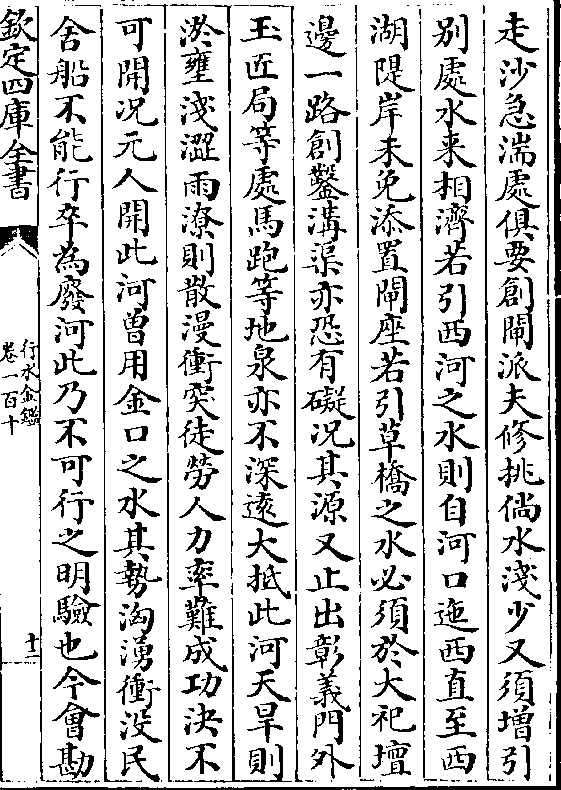 走沙急湍處俱要創閘派夫修挑倘水淺少又須增引
別處水来相濟若引西河之水則自河口迤西直至西
湖隄岸未免添置閘座若引草橋之水必須於大祀壇
邊一路創鑿溝渠亦恐有礙况其源又止出彰義門外
玉匠局等處馬跑等地泉亦不深遠大抵此河天旱則
淤壅淺澀雨潦則散漫衝突徒勞人力率難成功決不
可開况元人開此河曽用金口之水其勢洶湧衝没民
舍船不能行卒為廢河此乃不可行之明驗也今會勘
欽定四庫全書
行水金鑑
卷一百十
十二